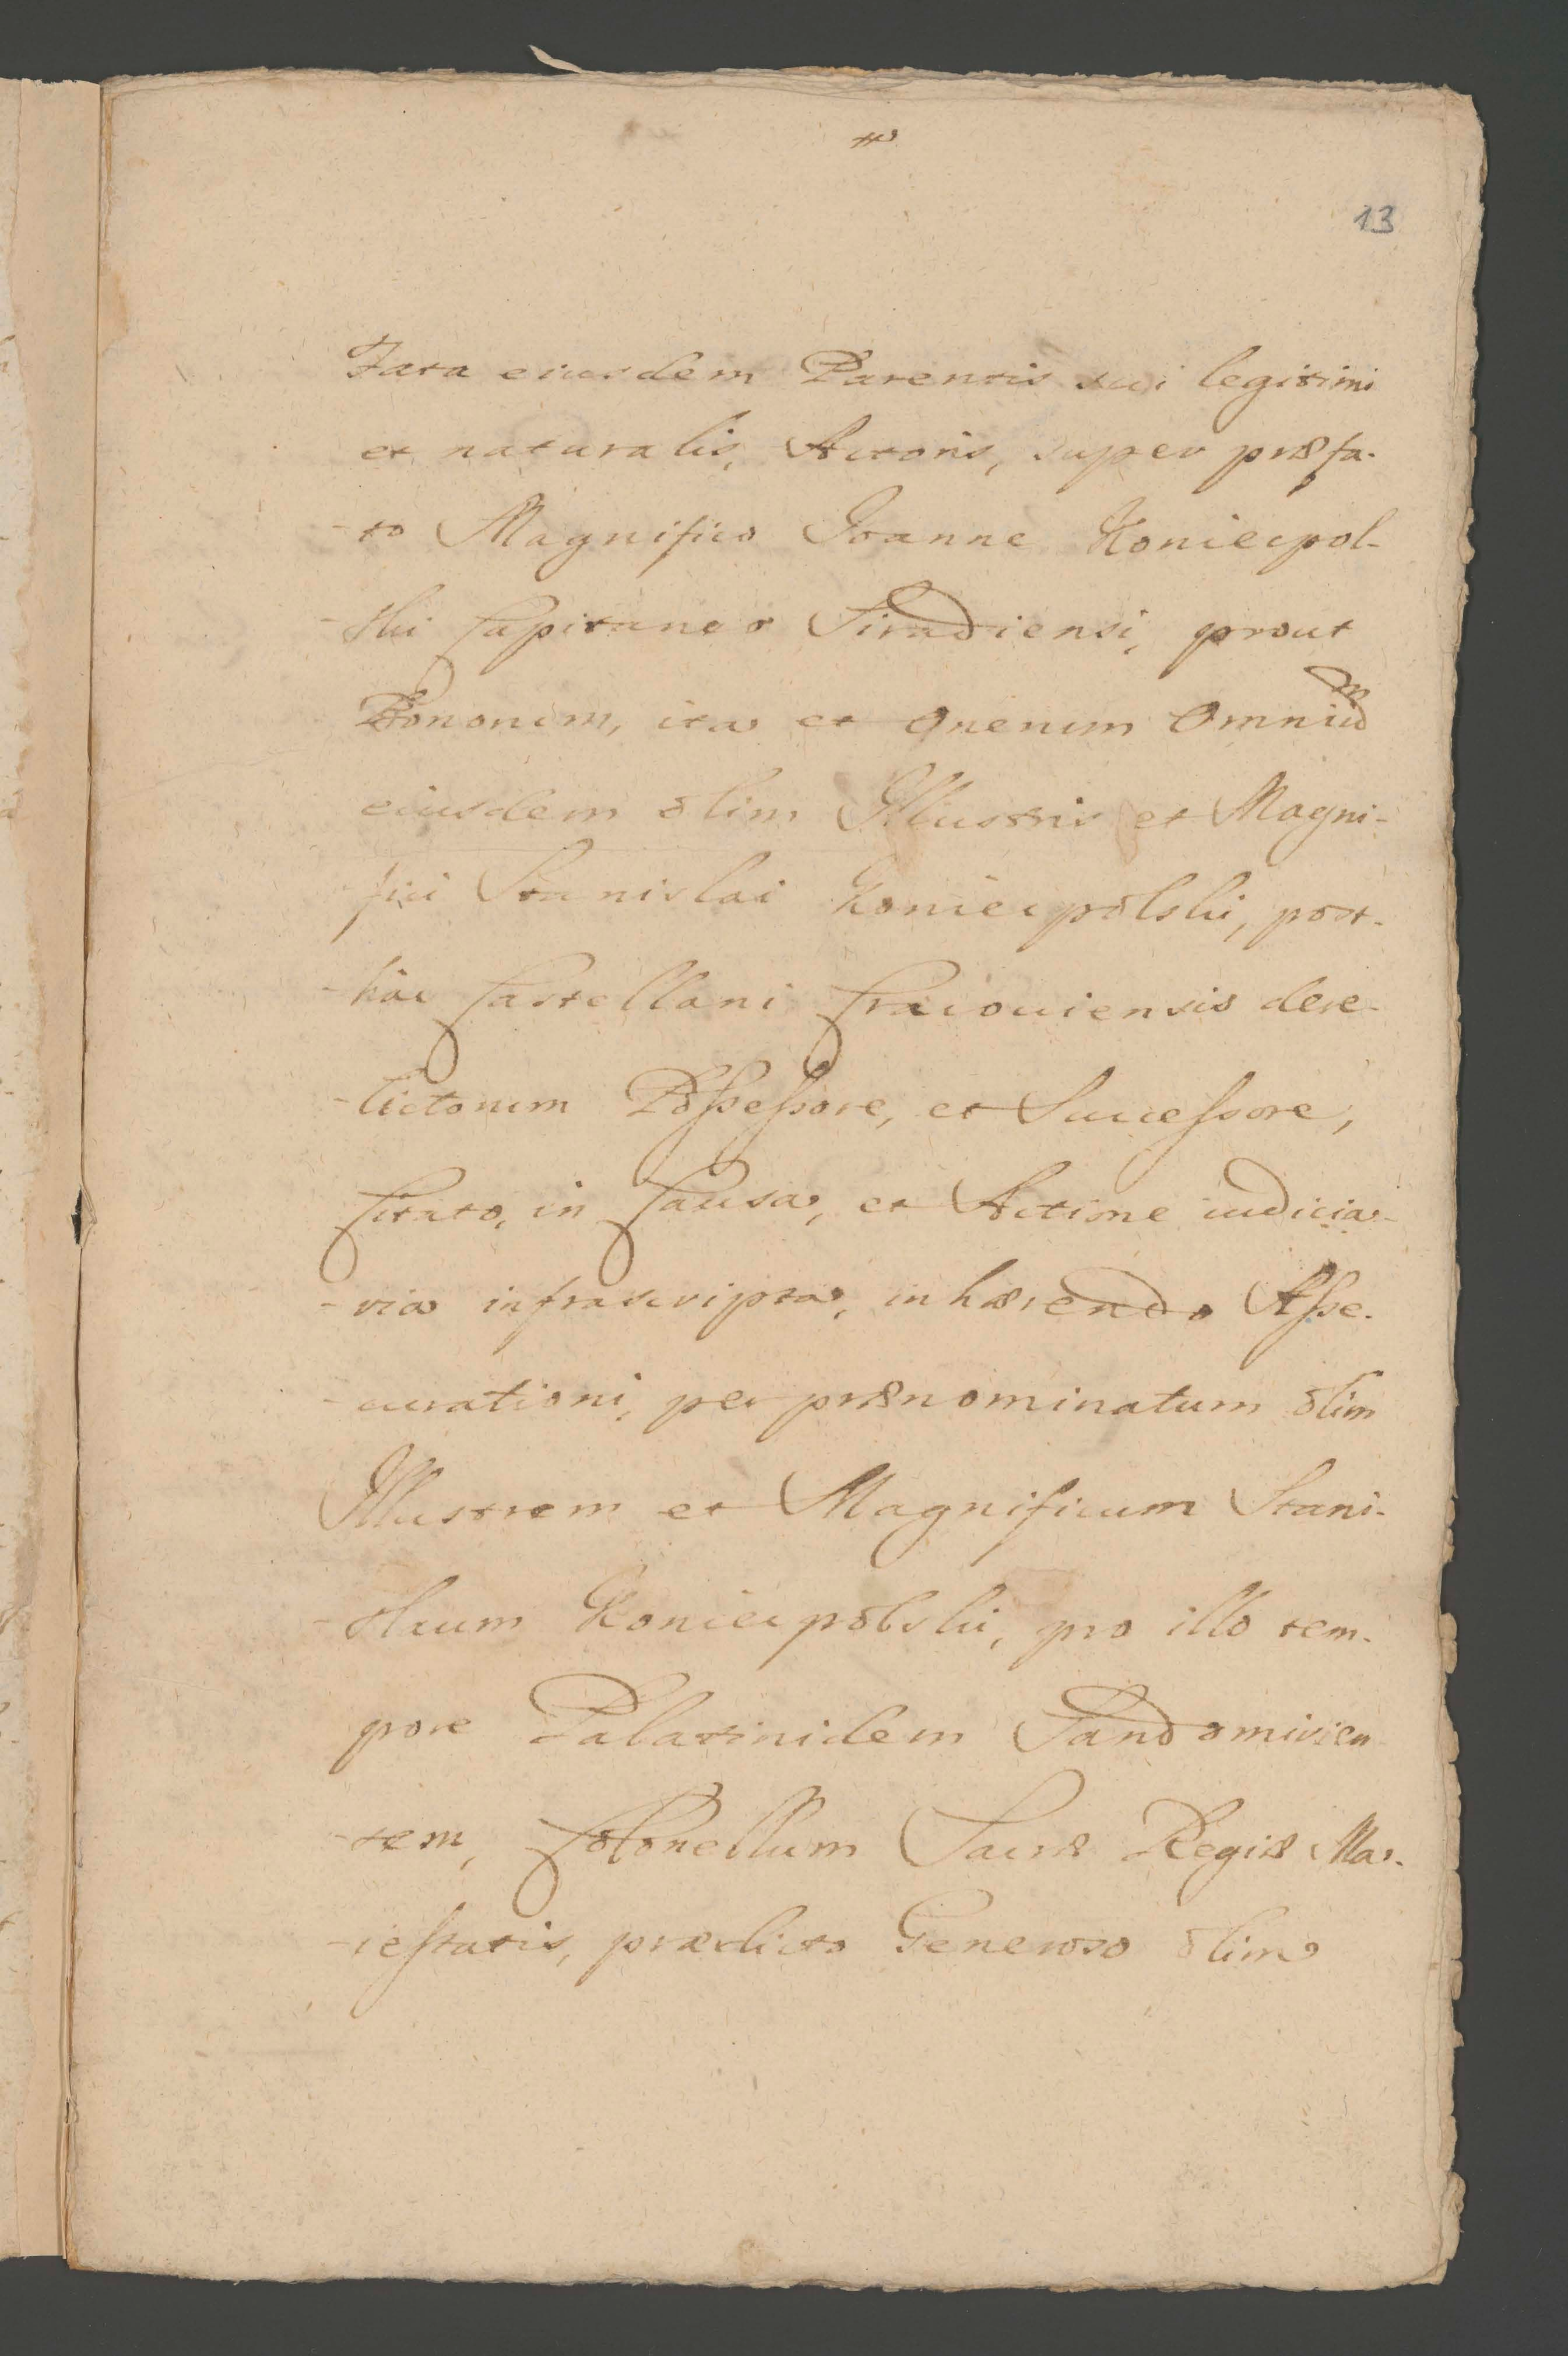 13
Fata eiusdem Parentis sui legitimi
et naturalis, Actoris, super præfa-
-to Magnifico Joanne Koniecpol-
-ski Capitaneo Siradiensi, prout
Bonorum, ita et Onerum Omnium
eiusdem olim Illustris et Magni-
fici Stanislai Koniecpolski, post-
-hac Castellani Cracouiensis dere-
-lictorum Possessore, et Successore,
Citato, in Causa, et Actione iudicia-
-ria infrascripta, inhærendo Asse-
-curationi, per prænominatum olim
Illustrem et Magnificum Stani-
-slaum Koniecpolski, pro illo tem-
pore Palatinidem Sandomirien-
-sem, Colonellum Sacræ Regiæ Ma-
-iestatis, prædicto Generoso olim